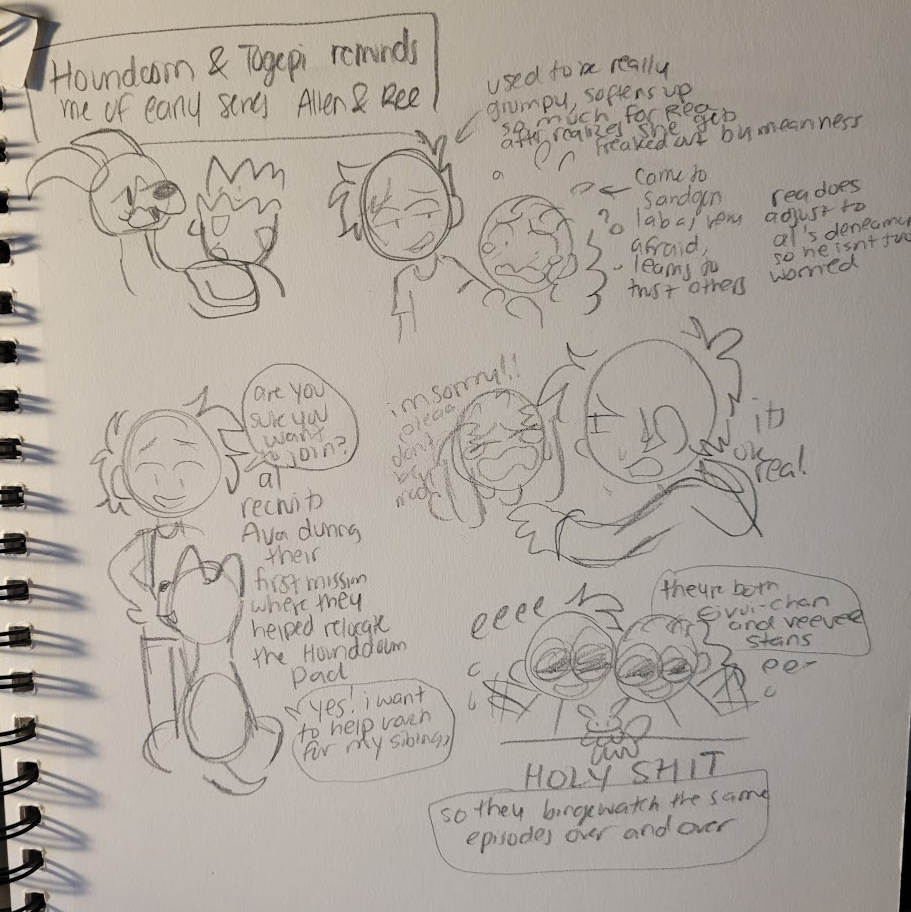 Houndoom & Togepi reminds
me of early series Allen & Ree
used to be really
grumpy, softens up
so much for Rea
after realizes she gets
freaked out by meanness
came to
sandgem
lab a/
afraid,
learns to
trust others
rea does
adjust to
al's
so he isn't too
worried
are you
sure you
want
to join?
al
recruits
Ava during
their
first mission
where they
helped relocate
the Houndoom
pack
yes! i want
to help
for my siblings
im sorry!!
dont
be
its
ok
rea!
eeee
theyre both
eivui-chan
and veevee
stans
eee
HOLY SHIT
so they bingewatch the same
episodes over and over